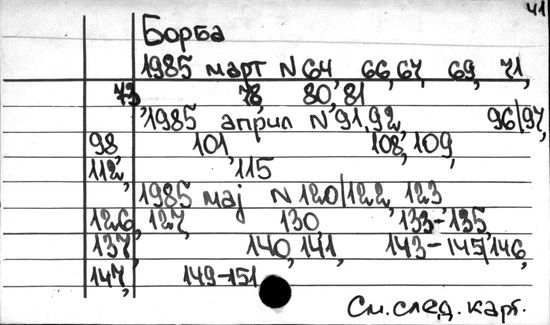 41
Борба
1985 март N 64, 66, 67, 69, 71,
73, 78, 80, 81
1985 април N 91, 92, 96/97,
98, 101, 108, 109,
112, 115
1985 мај N 120/122, 123
126, 127, 130, 133-135,
137, 140, 141, 143-145/146,
147, 149-151
См. след. карт.